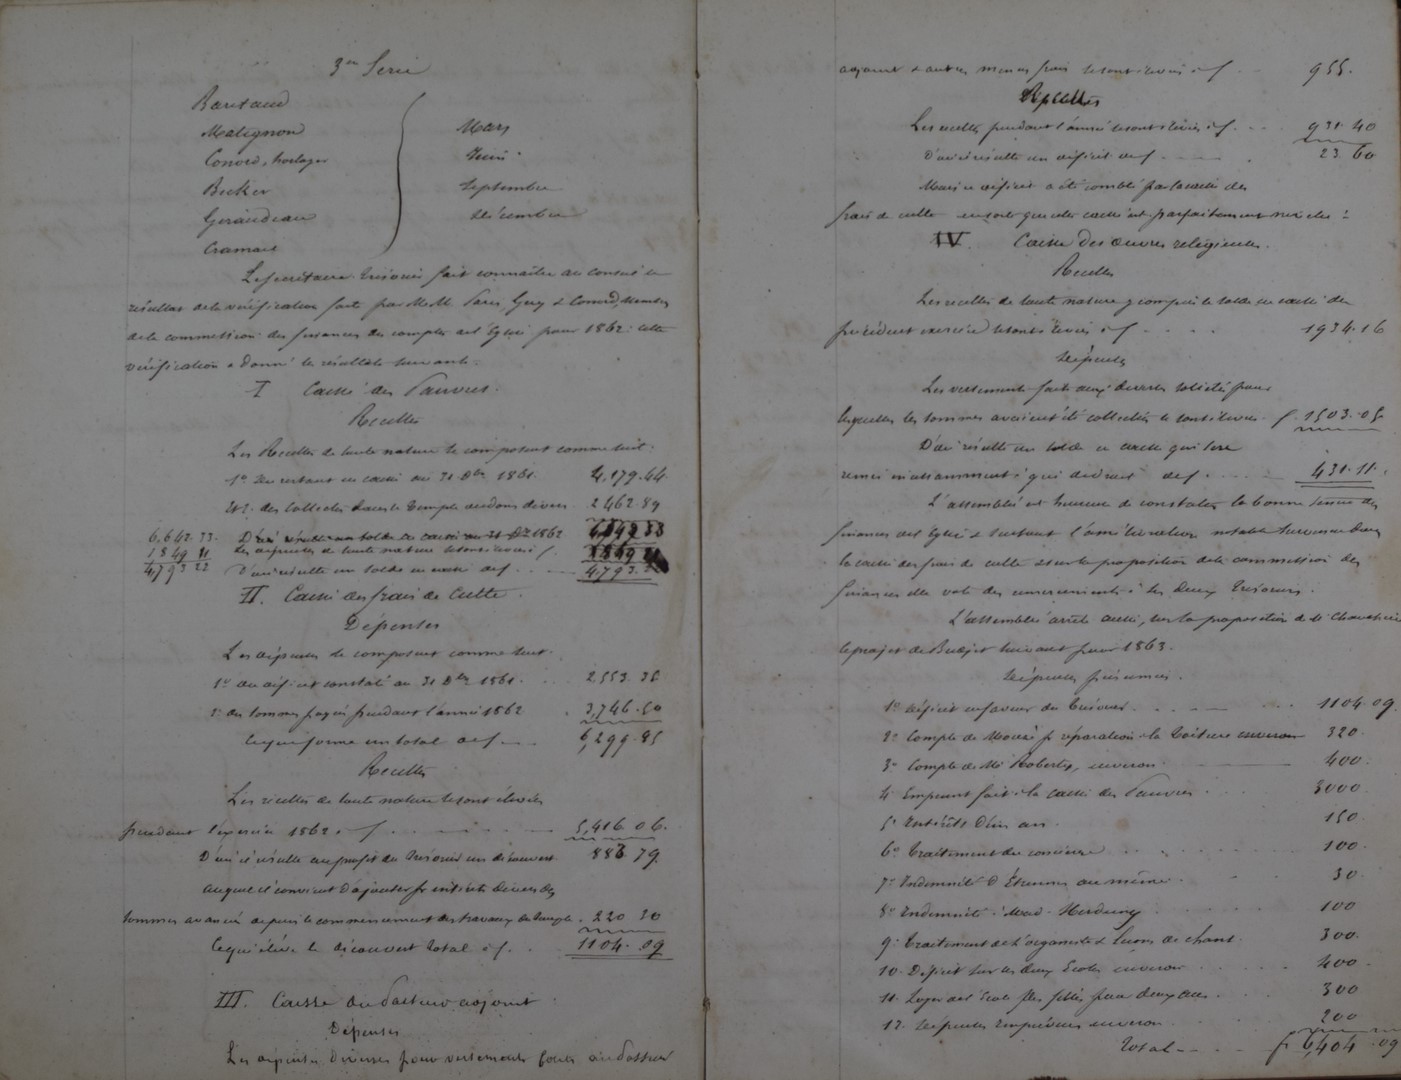 3me Serie
Baritaud
Malignon Mars
Conord, horloger Juin
Becker Septembre
Geraudeau Décembre
Cramaix
Le Secrétaire Trésorier fait connaître au Conseil le
résultat de la vérification faite par M.M. Paris, Gery & Conord, Membres
de la commission des finances des comptes de l'Eglise pour 1862. Cette
vérification a donné les résultats suivants.
I Caisse des Pauvres.
Recettes
Les Recettes de toute nature se composent comme suit.
1° En restant en caisse au 31 Dbre 1861. 4,179.44
et 2° des Collectes dans le Temple ou dons divers 2462.89
6,642.33. D'où résulte un solde en caisse au 31 Dbre 1862 6,642 33
1849 11 Les dépenses de toute nature se sont élevées f. 1849 11
4793 22 D'où résulte un solde en caisse de f. 4793.
II. Caisse des frais de Culte.
Dépenses
Les dépenses se composent comme suit.
1° du déficit constaté au 31 Dbre 1861. 2,553.35
2° des sommes payées pendant l'année 1862 3,746.50
Ce qui forme un total de f. 6,299.85
Recettes
Les recettes de toute nature se sont élevées
pendant l'exercice 1862 à f. 5,416 06.
D'où il résulte au profit du Trésorier un découvert 883 79
auquel il convient d'ajouter pr intérêts divers des
sommes avancées depuis le commencement des travaux du temple. 220 30
Ce qui élève le découvert total à f. 1104.09
III. Caisse du Pasteur adjoint
Dépenses
Les dépenses diverses pour versements faits au Pasteur
adjoint & autres menus frais se sont élevées à f. 955.
Recettes
Les recettes pendant l'année se sont élevées à f. 931.40
D'où il résulte un déficit de f. 23.60
Mais ce déficit a été comblé par la caisse des
frais de culte en sorte que cette caisse est parfaitement
IV. Caisse des œuvres religieuses.
Recettes
Les recettes de toute nature y compris le solde en caisse du
précédent exercice se sont élevées à f. 1934.16
Dépenses
Les versements faits aux diverses sociétés pour
lesquelles les sommes avaient été collectées se sont élevées f. 1503.05
D'où résulte un solde en caisse qui sera
remis incessamment à qui de droit de f. 431.11.
L'assemblée est heureuse de constater la bonne tenue des
finances de l'Eglise & surtout l'amélioration notable survenue dans
la caisse des frais de culte et sur la proposition de la commission des
finances elle vote des remerciements à ses deux Trésoriers.
L'assemblée arrête aussi, sur la proposition de Mr
le projet de Budget suivant pour 1863.
Dépenses présumées.
1° Déficit en faveur du Trésorier. 1104.09.
2° Compte de pr réparation à la toiture environ 320.
3° Compte de Mr Roberty, environ. 400.
4° Emprunt fait à la caisse des Pauvres. 3000.
5° Intérêts d'un an. 150.
6° Traitement du concierge 100.
7° Indemnité d'Étrennes au même. 30.
8° Indemnité à Mad. 100
9° Traitement de l'organiste & leçons de chant. 300.
10. Déficit sur les deux Ecoles environ 400.
11. Loyer de l'école des filles pour deux ans. 300
12. Dépenses imprévues environ 200
Total f. 6,404.09